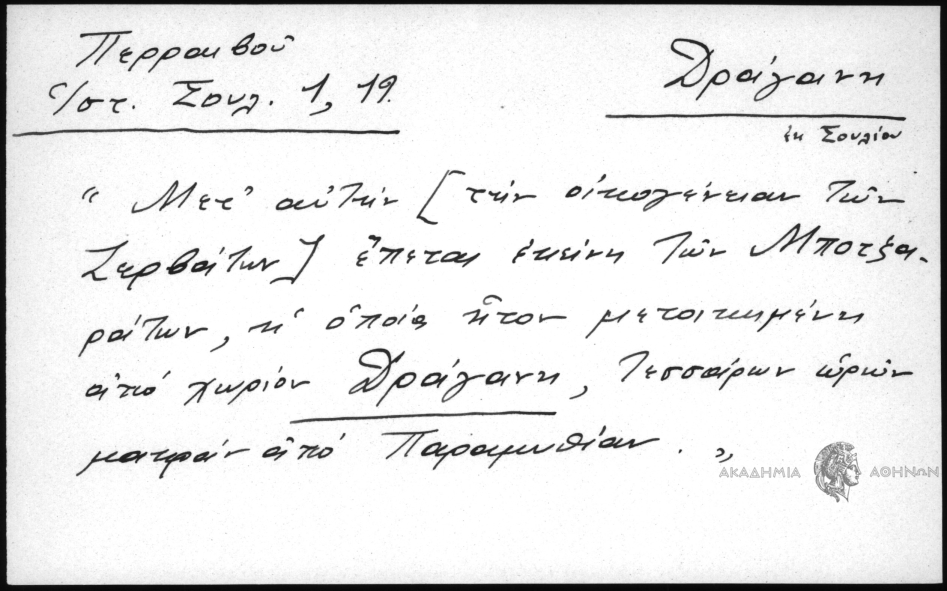 Περραιβοῦ
Ἱστ. Σουλ. 1, 19.
Δράγανη
ἐκ Σουλίου
“ Μετ' αὐτὴν [τὴν οἰκογένειαν τῶν
Ζερβάτων] ἕπεται ἐκείνη τῶν Μποτζα-
ράτων, ἡ ὁποία ἦτον μετοικημένη
ἀπὸ χωρίον Δράγανη, τεσσάρων ὡρῶν
μακρὰν ἀπὸ Παραμυθίαν. „
ΑΚΑΔΗΜΙΑ ΑΘΗΝΩΝ